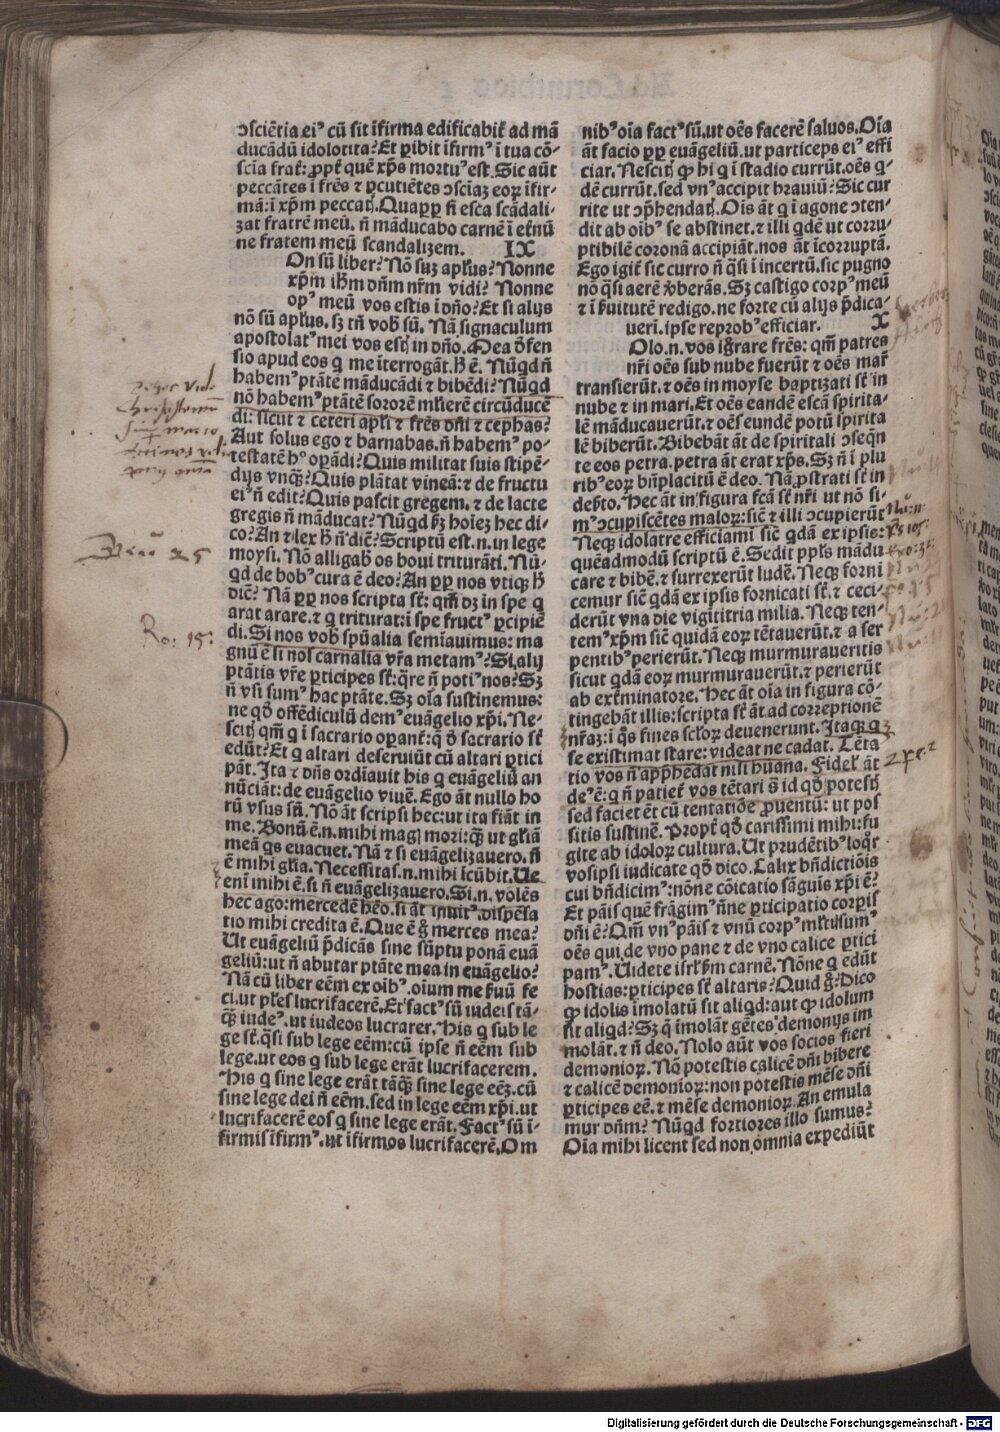 ↄsciẽtia eiꝰ cũ sit ĩfirma edificabit̃ ad mã
ducãdũ idolotita? Et ꝑibit ĩfirmꝰ ĩ tua cõ-
scĩa frat̃: ꝓpt̃ quẽ xp̃s mortuꝰ est. Sic aũt
peccãtes ĩ fr̃es ⁊ ꝑcutiẽtes ↄsciaꝫ eoꝝ ĩfir-
mã: ĩ xp̃m peccat̃. Quapp̱ si esca scãdali-
zat fratrẽ meũ, ñ mãducabo carnẽ ĩ et̃nũ
ne fratem meũ scandalizem. IX
On sũ liber? Nõ suꝫ apl̃us? Nonne
xp̃m ih̃m dñm nr̃m vidi? Nonne
opꝰ meũ vos estis ĩ dño? Et si alijs
nõ sũ apl̃us. sꝫ tñ vob̃ sũ. Nã signaculum
apostolatꝰ mei vos est̃ in dño. Mea d̃fen
sio apud eos q me ĩterrogãt. h̃ ẽ. Nũqd ñ
habemꝰ ptãtẽ mãducãdi ⁊ bibẽdi? Nũqd
nõ habemꝰ ptãtẽ sororẽ ml̃ierẽ circũducẽ
di: sicut ⁊ ceteri apl̃i ⁊ fr̃es dñi ⁊ cephas?
Aut solus ego ⁊ barnabas. ñ habemꝰ po-
testatẽ hᵒ oꝑãdi? Quis militat suis stipẽ-
dijs vnqꝫ? Quis plãtat vineã: ⁊ de fructu
eiꝰ ñ edit? Quis pascit gregem. ⁊ de lacte
gregis ñ mãducat? Nũqd hꝫ hoĩeꝫ hec di-
co? An ⁊ lex h̃ ñ dic̃? Scriptũ est .n. in lege
moysi. Nõ alligab̃ os boui triturãti. Nũ-
qd de bobꝰ cura ẽ deo? An pp̱ nos vtiqꝫ h̃
dic̃? Nã pp̱ nos scripta st̃: qm̃ dꝫ in spe q
arat arare. ⁊ q triturat: ĩ spe fructꝰ ꝑcipiẽ
di. Si nos vob̃ spũalia semĩauimus: ma
gnũ ẽ si nos carnalia vr̃a metamꝰ? Si alij
ptãtis vr̃e ꝑticipes st̃: q̃re ñ potiꝰ nos? Sꝫ
ñ vsi sumꝰ hac ptãte. Sꝫ oĩa sustinemus:
ne qd̃ offẽdiculũ demꝰ euãgelio xp̃i. Ne-
scit̃ qm̃ q ĩ sacrario oꝑant̃: q d̃ sacrario st̃
edũt? Et q altari deseruiũt cũ altari ꝑtici
pãt. Ita ⁊ dñs ordĩauit his q euãgeliũ an
nũciãt: de euãgelio viuẽ. Ego ãt nullo ho
rũ vsus sũ. Nõ ãt scripsi hec: ut ita fiãt in
me. Bonũ ẽ .n. mihi magꝭ mori: qꝫ ut gl̃iã
meã qs euacuet. Nã ⁊ si euãgelizauero. ñ
ẽ mihi gl̃ia. Necessitas .n. mihi ĩcũbit. Ue
enĩ mihi ẽ. si ñ euãgelizauero. Si .n. volẽs
hec ago: mercedẽ hẽo. si ãt inuitꝰ, dispẽsa
tio mihi credita ẽ. Que ẽ g̃ merces mea?
Ut euãgeliũ p̃dicãs sine sũptu ponã euã
geliũ: ut ñ abutar ptãte mea in euãgelio?
Nã cũ liber eẽm ex oĩbꝰ. oĩum me ẜuũ fe
ci. ut pl̃es lucrifacerẽ. Et factꝰ sũ iudeis tã-
qꝫ iudeꝰ. ut iudeos lucrarer. His q sub le
ge st̃. q̃si sub lege eẽm: cũ ipse ñ eẽm sub
lege. ut eos q sub lege erãt lucrifacerem.
His q sine lege erãt tãqꝫ sine lege eẽꝫ. cũ
sine lege dei ñ eẽm. sed in lege eẽm xp̃i. ut
lucrifacerẽ eos q sine lege erãt. Factꝰ sũ ĩ-
firmis ĩfirmꝰ. ut ĩfirmos lucrifacerẽ. Om
nibꝰ oĩa factꝰ sũ. ut oẽs facerẽ saluos. Oĩa
ãt facio pp̱ euãgeliũ. ut particeps eiꝰ effi
ciar. Nescit̃ ꝙ hi q ĩ stadio currũt. oẽs q-
dẽ currũt. sed vnꝰ accipit brauiũ? Sic cur
rite ut ↄp̃hendat̃. Oĩs ãt q ĩ agone ↄten-
dit ab oĩbꝰ se abstinet. ⁊ illi qdẽ ut corru-
ptibilẽ coronã accipiãt. nos ãt ĩcorruptã.
Ego igit̃ sic curro ñ q̃si ĩ incertũ. sic pugno
nõ q̃si aerẽ v̾berãs. Sꝫ castigo corpꝰ meũ
⁊ ĩ ẜuitutẽ redigo. ne forte cũ alijs p̃dica-
uerĩ. ipse reprobꝰ efficiar. X
Olo .n. vos ig̃rare fr̃es: qm̃ patres
nr̃i oẽs sub nube fuerũt ⁊ oẽs mar̃
transierũt. ⁊ oẽs in moyse baptizati st̃ in
nube ⁊ in mari. Et oẽs eandẽ escã spirita-
lẽ mãducauerũt. ⁊ oẽs eundẽ potũ spirita
lẽ biberũt. Bibebãt ãt de spiritali ↄseqñ
te eos petra. petra ãt erat xp̃s. Sꝫ ñ ĩ plu
ribꝰ eoꝝ bñplacitũ ẽ deo. Nã ꝓstrati st̃ in
deẜto. Hec ãt in figura fcã st̃ nr̃i ut nõ si-
mꝰ ↄcupiscẽtes maloꝝ: sic̃ ⁊ illi ↄcupierũt
Neqꝫ idolatre efficiamĩ sic̃ qdã ex ipsis:
quẽadmodũ scriptũ ẽ. Sedit ppl̃s mãdu
care ⁊ bibẽ. ⁊ surrexerũt ludẽ. Neqꝫ forni
cemur sic̃ qdã ex ipsis fornicati st̃. ⁊ ceci-
derũt vna die vigĩtitria milia. Neqꝫ ten-
temꝰ xp̃m sic̃ quidã eoꝝ tẽtauerũt. ⁊ a ser
pentibꝰ perierũt. Neqꝫ murmuraueritis
sicut qdã eoꝝ murmurauerũt. ⁊ perierũt
ab extẽminatore. Hec ãt oĩa in figura cõ-
tingebãt illis: scripta st̃ ãt ad correptionẽ
nr̃aꝫ: ĩ qs fines scl̃oꝝ deuenerunt. Itaqꝫ q
se existimat stare: videat ne cadat. Tẽta
tio vos ñ app̃hẽdat nisi hũana. Fidel̃ ãt
deꝰ ẽ: q ñ patiet̃ vos tẽtari s̃ id qd̃ potest̃
sed faciet ẽt cũ tentatiõe ꝓuentũ: ut pos
sitis sustinẽ. Propt̃ qd̃ carissimi mihi: fu
gite ab idoloꝝ cultura. Ut prudẽtibꝰ loq̃r
vosipsi iudicate qd̃ dico. Calix bñdictiõis
cui bñdicimꝰ: nõne cõicatio sãguis xp̃i ẽ?
Et pãis quẽ frãgimꝰ ñne ꝑticipatio corꝑis
dñi ẽ? Qm̃ vnꝰ pãis ⁊ vnũ corpꝰ ml̃ti sumꝰ
oẽs qui de vno pane ⁊ de vno calice ꝑtici
pamꝰ. Uidete isrl̃ ẜm carnẽ. Nõne q edũt
hostias: ꝑticipes st̃ altaris? Quid g̃? Dico
ꝙ idolis ĩmolatũ sit aliqd: aut ꝙ idolum
sit aliqd? Sꝫ q̃ imolãt gẽtes demonijs im
molãt. ⁊ ñ deo. Nolo aũt vos socios fieri
demonioꝝ. Nõ potestis calicẽ dñi bibere
⁊ calicẽ demonioꝝ: non potestis mẽse dñi
ꝑticipes eẽ. ⁊ mẽse demonioꝝ. An emula
mur dñm? Nũqd fortiores illo sumus?
Oĩa mihi licent sed non omnia expediũt
Deu 25
Ro: 15:
Digitalisierung gefördert durch die Deutsche Forschungsgemeinschaft - DFG